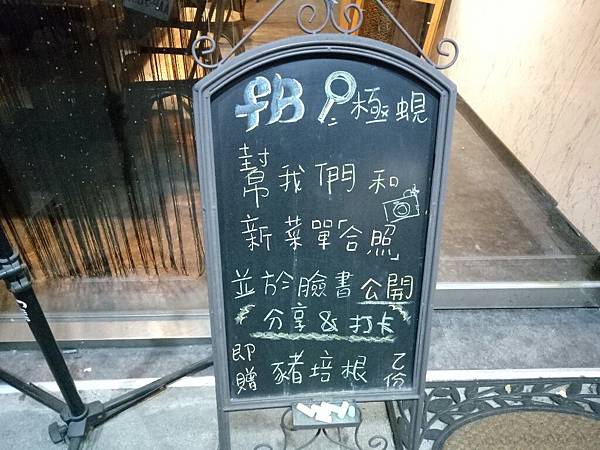 fB 極蜆
幫我們和
新菜單「合照」
並於臉書公開
分享&打卡
即贈 豬培根 乙份